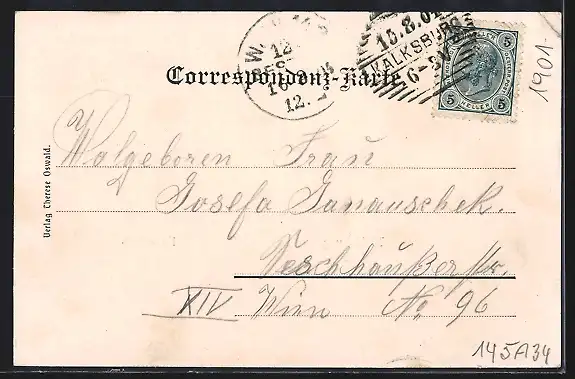 15.8.01
KALKSBURG
6-
W
12
16
12.
5 5
HELLER
1901
Correspondenz-Karte
Verlag Therese Oswald.
Wolgeboren Frau
Josefa Janauschek.
XIV Wien No 96
145A34